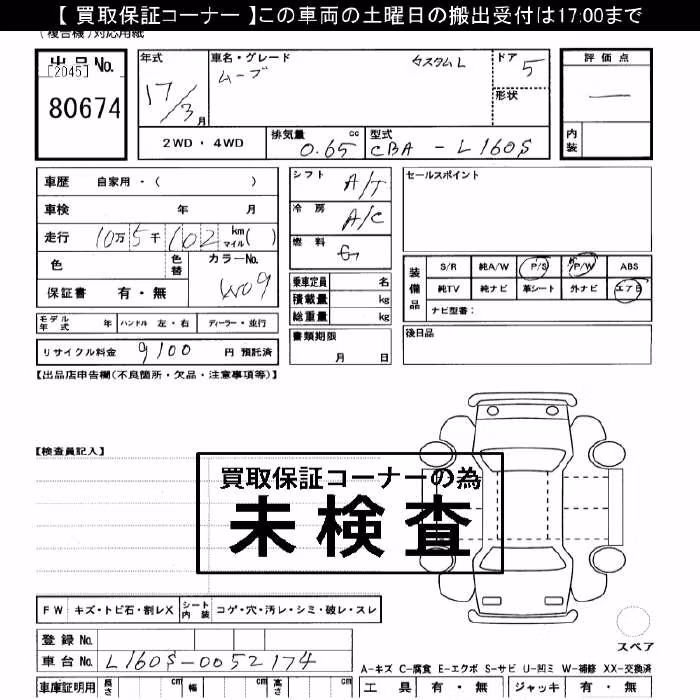 【 買取保証コーナー 】この車両の土曜日の搬出受付は17:00まで
(複合機)対応用紙
出品No.
[2045]
80674
年式
17/3月
車名・グレード
ムーブ カスタムL
ドア
5
形状
評価点
—
内装
2WD・4WD
排気量 cc
0.65
型式
CBA - L160S
車歴 自家用・( )
車検 年 月
走行 10万5千102 km マイル( )
色 色替 カラーNo.
W09
保証書 有・無
モデル年式 年 ハンドル 左・右 ディーラー・並行
リサイクル料金 9100 円 預託済
シフト A/T
冷房 A/C
燃料 G
乗車定員 名
積載量 kg
総重量 kg
書類期限
月 日
セールスポイント
装備品
S/R 純A/W P/S P/W ABS
純TV 純ナビ 革シート 外ナビ エアB
ナビ型番:
後日品
【出品店申告欄(不良箇所・欠品・注意事項等)】
【検査員記入】
買取保証コーナーの為
未検査
FW キズ・トビ石・割レX シート内装 コゲ・穴・汚レ・シミ・破レ・スレ
登録No.
車台No. L160S-0052174
車庫証明用 長さ cm 幅 cm 高さ cm
スペア
A-キズ C-腐食 E-エクボ S-サビ U-凹ミ W-補修 XX-交換済
工具 有・無 ジャッキ 有・無